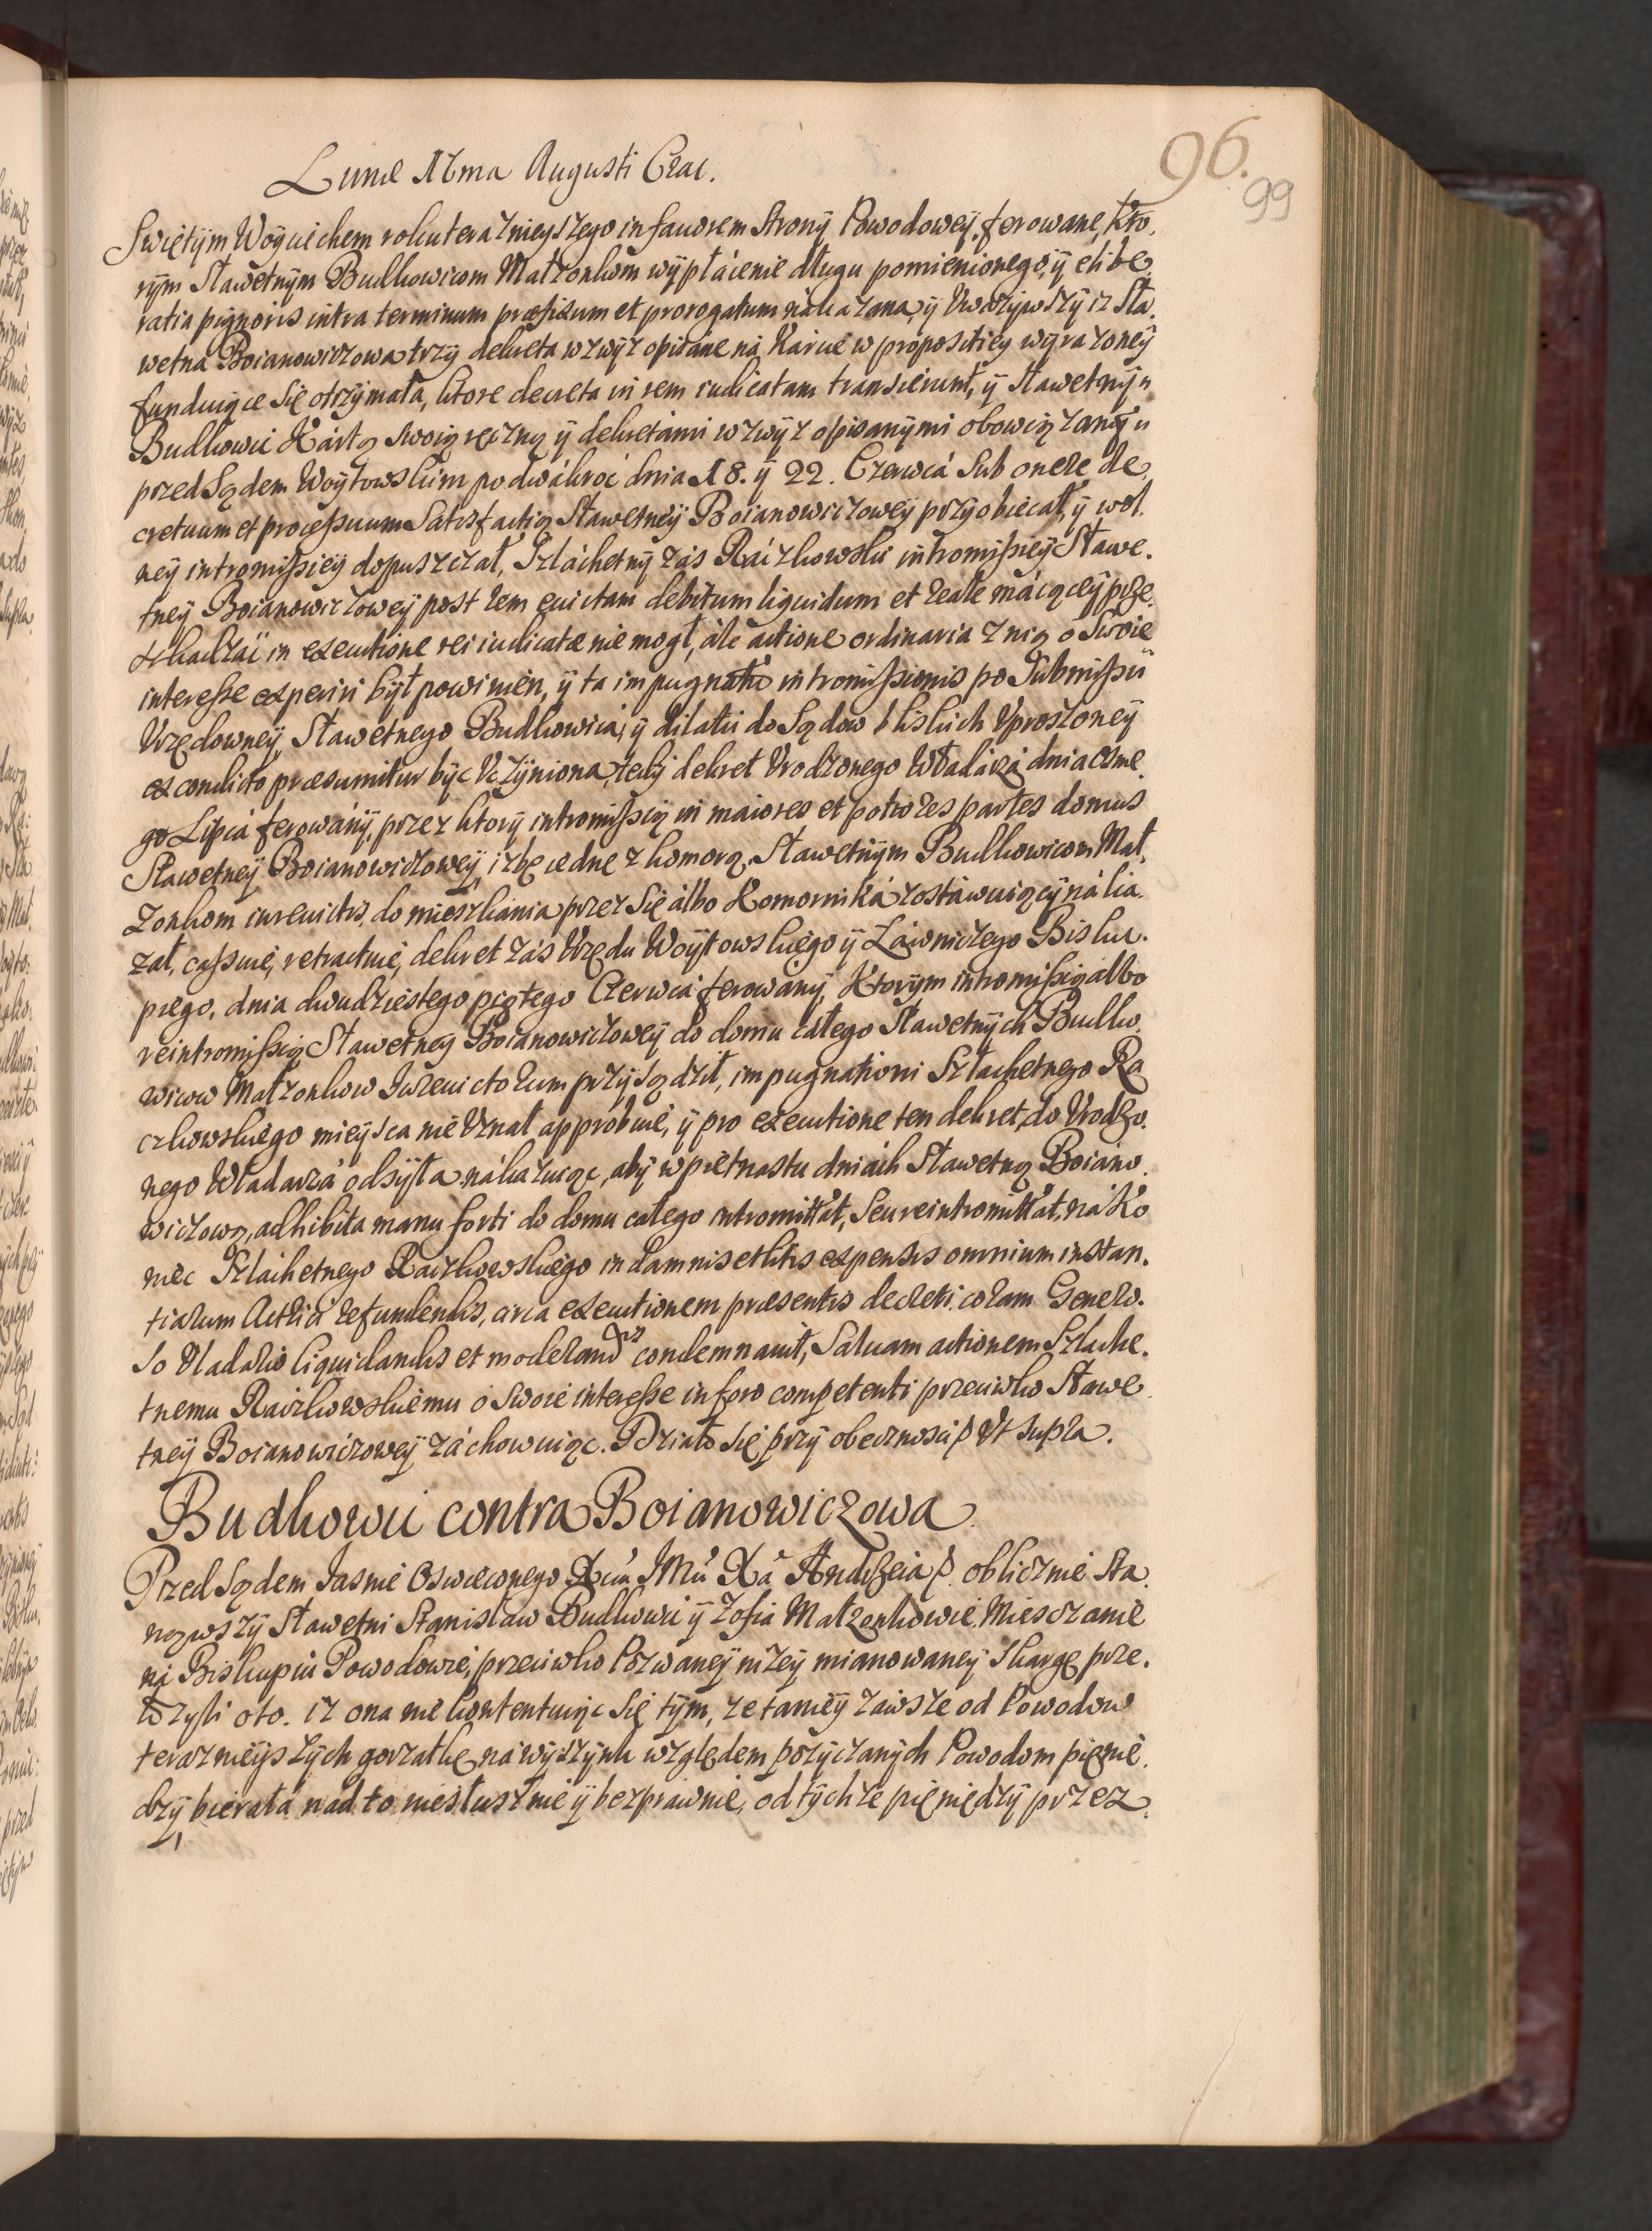 96.
99
Lunæ 11ma Augusti Crac.
Swiętÿm Woÿciechem roku terażnieyszego in fauorem stronÿ Powodoweÿ ferowane, kto.
rÿm Sławetnÿm Budkowicom Małzonkom wÿpłácenie długu pomienionego, ÿ elibe.
ratia pignoris intra terminum præfixum et prorogatum nákazana, ÿ Vważÿwszÿ iz Sła.
wetna Boianowiczowa trzÿ dekreta wzwÿz opisane ná Karcie w propositieÿ wÿrazoneÿ
funduiące się otrzÿmała, ktore decreta in rem iudicatam transierunt, ÿ Sławetnÿ
Budkowic Kártą swoią ręczną ÿ dekretámi wzwÿz opisanÿmi obowiązanÿ
przed Sądem Woÿtowskim po dwákroć dnia 18. ÿ 22. Czerwcá sub onere de.
cretuum et processuum Satisfactią Sławetneÿ Boianowiczoweÿ przÿobiecał, ÿ wol.
neÿ intromissieÿ dopuszczał, Szláchetnÿ záś Ráczkowski intromissieÿ Sławe.
tneÿ Boianowiczoweÿ post rem euictam debitum liquidum et reale máiąceÿ prze.
szkadzáć in executione rei iudicatæ nie mogł, ále actione ordinaria z nią o swoie
interesse experiri bÿł powinien, ÿ ta impugnatio intromissionis po Submissii
Vrzędowneÿ Sławetnego Budkowicá, ÿ dilatii do Sądow bliskich Vproszoneÿ
ex condicto præsumitur bÿc Vczÿniona, tedÿ dekret Vrodzonego Władárzá dnia osme.
go Lipcá ferowánÿ, przez ktorÿ intromissią in maiores et potiores partes domus
Sławetneÿ Boianowiczoweÿ, izbę iednę z komorą, Sławetnÿm Budkowicom Mał,
zonkom iureuictis, do mieszkánia przez się álbo Komorniká zostáwuiącÿ náka.
zał, cassuie, retractuie, dekret záś Vrzędu Woÿtowskiego ÿ Ławniczego Bisku.
piego, dnia dwudziestego piątego Czerwcá ferowanÿ, Ktorÿm intromissią albo
reintromissią Sławetneÿ Boianowiczoweÿ do domu całego Sławetnÿch Budko.
wicow Małzonkow Iureuictorum przÿsądził, impugnationi Szlachetnego Ra
czkowskiego mieÿsca nie Vznał approbuie, ÿ pro executione ten dekret, do Vrodzo.
nego Władarzá odsÿła nákazuiąc, abÿ w piętnastu dniách Sławetną Boiano.
wiczową, adhibita manu forti do domu całego intromittát, seu reintromittát, ná Ko
niec Szláchetnego Raczkowskiego in damnis et litis expensis omnium instan.
tiarum Actrici refundendis, circa executionem præsentis decreti, coram Genero.
so Vladario liquidandis et moderandis condemnauit, Saluam actionem Szlache.
tnemu Raczkowskiemu o swoie interesse in foro competenti przeciwko Sławe.
tneÿ Boianowiczoweÿ záchowuiąc. Działo się przÿ obecznosci p Vt supra.
Budkowic contra Boianowiczowa
Przed Sądem Iasnie Oswieconego Xcia IMci Xa Andrzeia p. oblicznie Sta.
nąwszÿ Sławetni Stanisław Budkowic ÿ Zofia Małzonkowie, Miesczanie
ná Biskupiu Powodowie, przeciwko Pozwaneÿ niżeÿ mianowaneÿ skargę prze.
łozÿli oto. iz ona nie kontentuiąc się tÿm, ze tanieÿ záwsze od Powodow
terazneÿszÿch gorzałkę ná wÿszÿnk względem pozÿczanÿch Powodom pienię.
dzÿ bierała nad to niesłusznie ÿ bezprawnie, od tÿchże pięniędzÿ przez